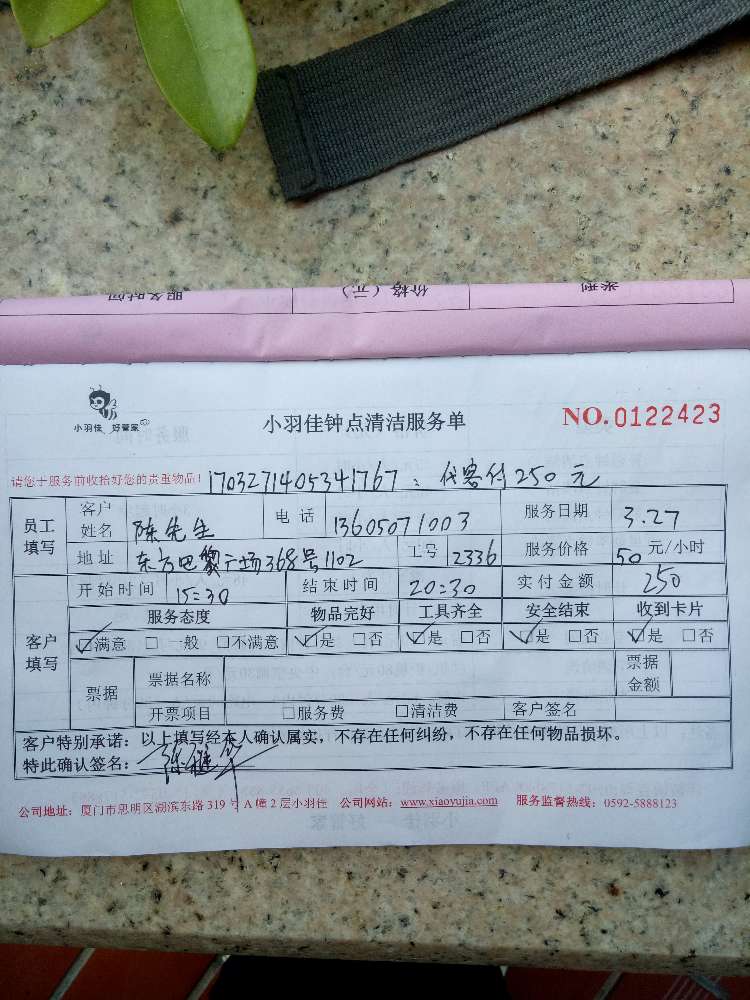 服务时间 价格（元） 类型
小羽佳 好管家
小羽佳钟点清洁服务单
NO.0122423
请您于服务前收拾好您的贵重物品！ 17032714053417​67：代客付250元
员工填写 客户姓名 陈先生 电话 13605071003 服务日期 3.27
地址 东方巴黎广场368号1102 工号 2336 服务价格 50元/小时
客户填写 开始时间 15:30 结束时间 20:30 实付金额 250
服务态度 物品完好 工具齐全 安全结束 收到卡片
☑满意 □一般 □不满意 ☑是 □否 ☑是 □否 ☑是 □否 ☑是 □否
票据 票据名称 票据金额
开票项目 □服务费 □清洁费 客户签名
客户特别承诺：以上填写经本人确认属实，不存在任何纠纷，不存在任何物品损坏。
特此确认签名：
公司地址：厦门市思明区湖滨东路319号A幢2层小羽佳 公司网站：www.xiaoyujia.com 服务监督热线：0592-5888123